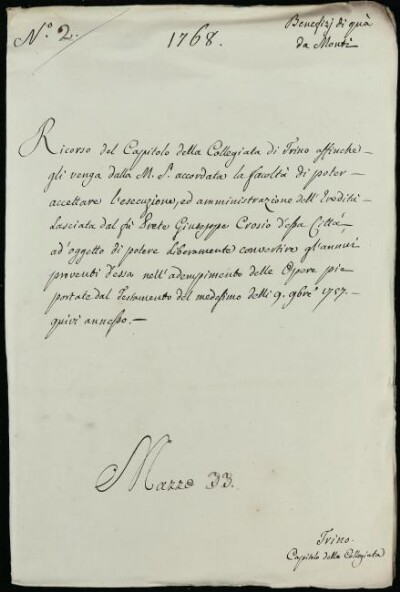 N.º 2.
1768.
Benefizj di quà
da Monti
Ricorso del Capitolo della Collegiata di Trino affinche
gli venga dalla M. S. accordata la facoltà di poter
accettare l'esecuzione, ed amministrazione dell'Eredità
lasciata dal fù Prete Giuseppe Crosio d'essa Città
ad'oggetto di potere liberamente convertire gl'annui
proventi d'essa nell'adempimento delle Opere pie
portate dal Testamento del medesimo delli 9. 9bre 1757.
quivi annesso.
Mazzo 33.
Trino.
Capitolo della Collegiata